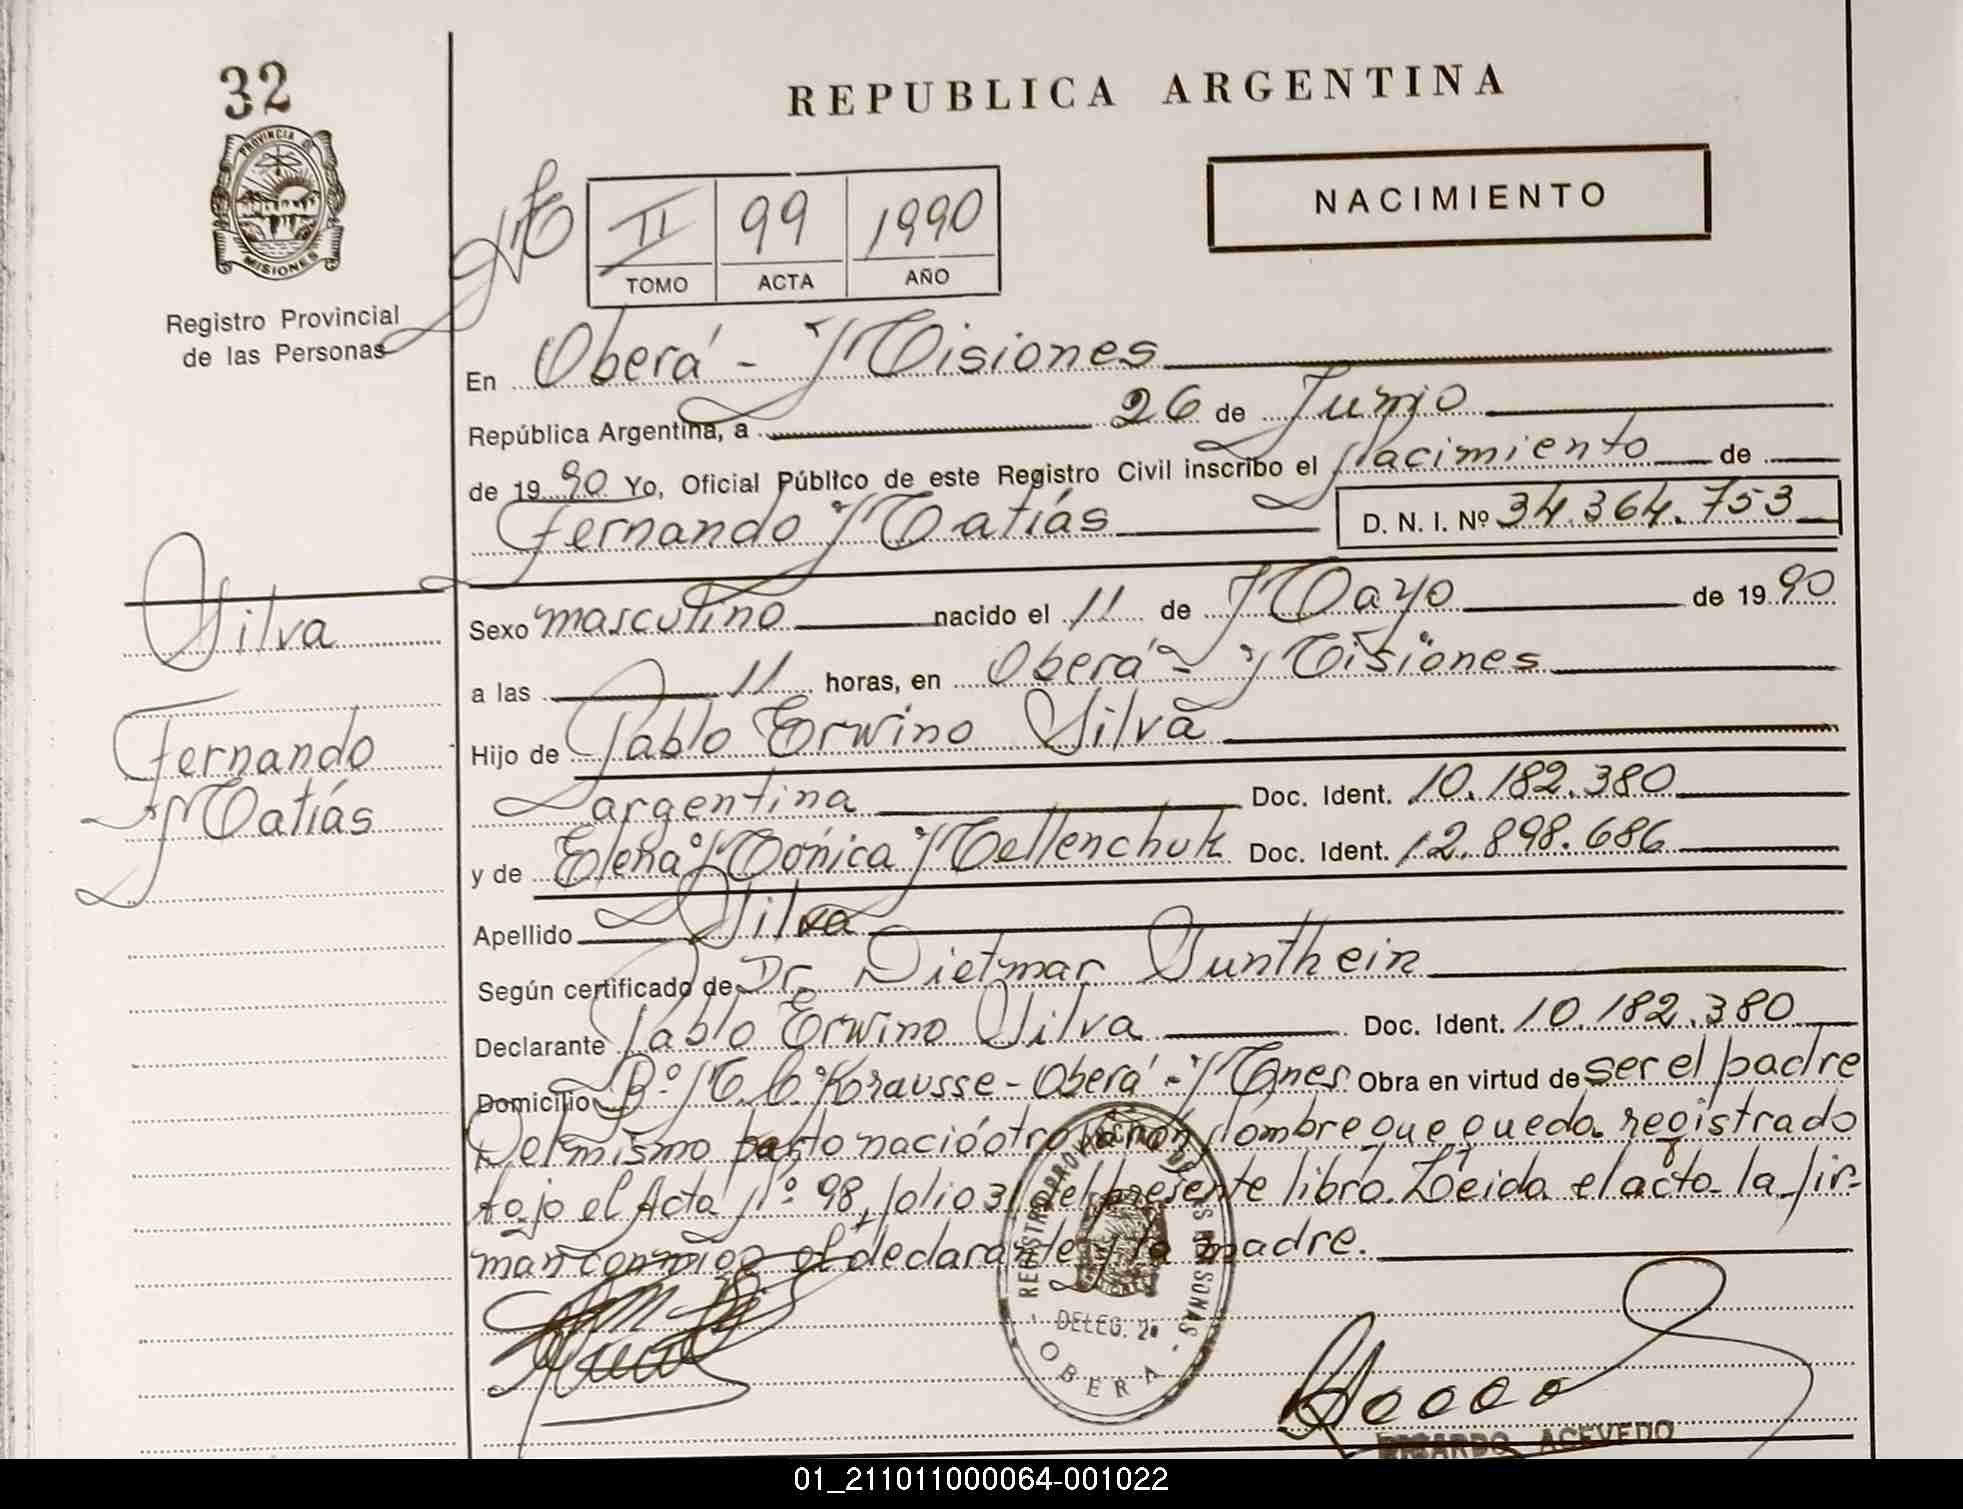 32
REPUBLICA ARGENTINA
PROVINCIA
MISIONES
II 99 1990
TOMO ACTA AÑO
NACIMIENTO
Registro Provincial
de las Personas
En Oberá - Misiones
República Argentina, a 26 de Junio
de 1990 Yo, Oficial Público de este Registro Civil inscribo el Nacimiento de
Fernando Matías D. N. I. Nº 34.364.753
Silva
Fernando
Matías
Sexo masculino nacido el 11 de Mayo de 1990
a las 11 horas, en Oberá - Misiones
Hijo de Pablo Erwino Silva
argentina Doc. Ident. 10.182.380
y de Elena Mónica Mellenchuk Doc. Ident. 12.898.686
Apellido Silva
Según certificado de Dr. Dietmar Sunthein
Declarante Pablo Erwino Silva Doc. Ident. 10.182.380
Domicilio Bº M. C. Krausse - Oberá - Mnes. Obra en virtud de ser el padre
Del mismo parto nació otro varón Nombre que queda registrado
bajo el Acta Nº 98, folio 31 del presente libro. Leida el acta la fir-
man conmigo el declarante y la madre.
REGISTRO PROVINCIAL DE LAS PERSONAS
DELEG. 2ª
OBERA
RICARDO ACEVEDO
01_211011000064-001022